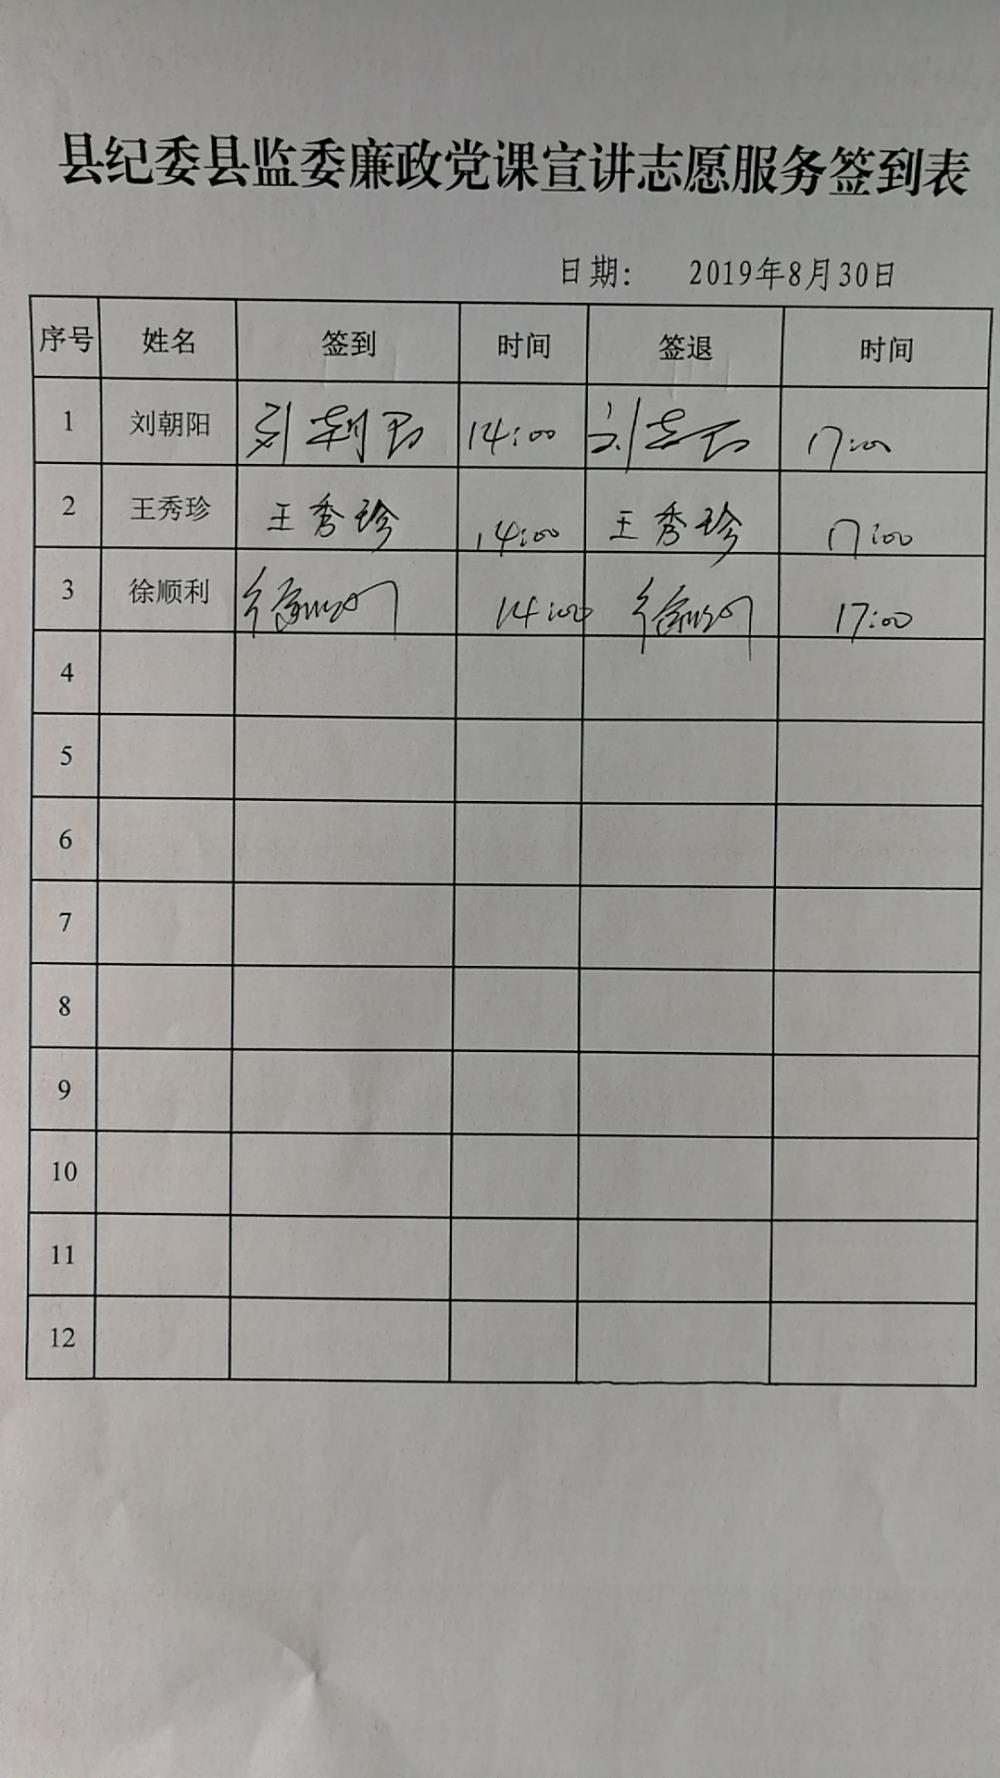 县纪委县监委廉政党课宣讲志愿服务签到表
日期： 2019年8月30日
序号 姓名 签到 时间 签退 时间
1 刘朝阳 刘朝阳 14:00 刘朝阳 17:00
2 王秀珍 王秀珍 14:00 王秀珍 17:00
3 徐顺利 徐顺利 14:00 徐顺利 17:00
4
5
6
7
8
9
10
11
12